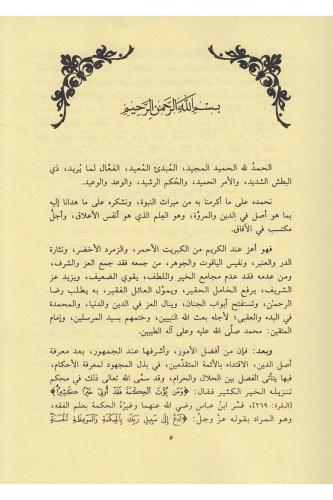 بسم الله الرحمن الرحيم
الحمدُ لله الحميد المجيد، المبدئ المُعيد، الفعّال لما يُريد، ذي
البطش الشديد، والأمر الحميد، والحُكم الرشيد، والوعد والوعيد.
نحمده على ما أكرمنا به من ميراث النبوة، ونشكره على ما هدانا إليه
بما هو أصل في الدين والمروّة، وهو العِلم الذي هو أنفس الأعلاق، وأجلُّ
مكتسب في الآفاق.
فهو أعز عند الكريم من الكبريت الأحمر، والزمرد الأخضر، ونثارة
الدر والعنبر، ونفيس الياقوت والجوهر، من جمعه فقد جمع العز والشرف،
ومن عدمه فقد عدم مجامع الخير واللطف، يقوي الضعيف، ويزيد عز
الشريف، يرفع الخامل الحقير، ويموّل العائل الفقير، به يطلب رضا
الرحمٰن، وتستفتح أبواب الجنان، وينال العز في الدين والدنيا، والمحمدة
في البدء والعقبى؛ لأجله بعث الله النبيين، وختمهم بسيد المرسلين، وإمام
المتقين: محمد صلّى الله عليه وعلى آله الطيبين.
وبعد: فإن من أفضل الأمور، وأشرفها عند الجمهور، بعد معرفة
أصل الدين، الاقتداء بالأئمة المتقدّمين، في بذل المجهود لمعرفة الأحكام،
فبها يتأتى الفصل بين الحلال والحرام، وقد سمّى الله تعالى ذلك في محكم
تنزيله الخير الكثير فقال: ﴿وَمَن يُؤْتَ ٱلْحِكْمَةَ فَقَدْ أُوتِيَ خَيْرًا كَثِيرًا﴾
[البقرة: ٢٦٩]، فسَّر ابنُ عباس رضي الله عنهما وغيرُه الحكمة بعلم الفقه،
وهو المراد بقوله عزّ وجلّ: ﴿ٱدْعُ إِلَىٰ سَبِيلِ رَبِّكَ بِٱلْحِكْمَةِ وَٱلْمَوْعِظَةِ ٱلْحَسَنَةِ﴾
٥